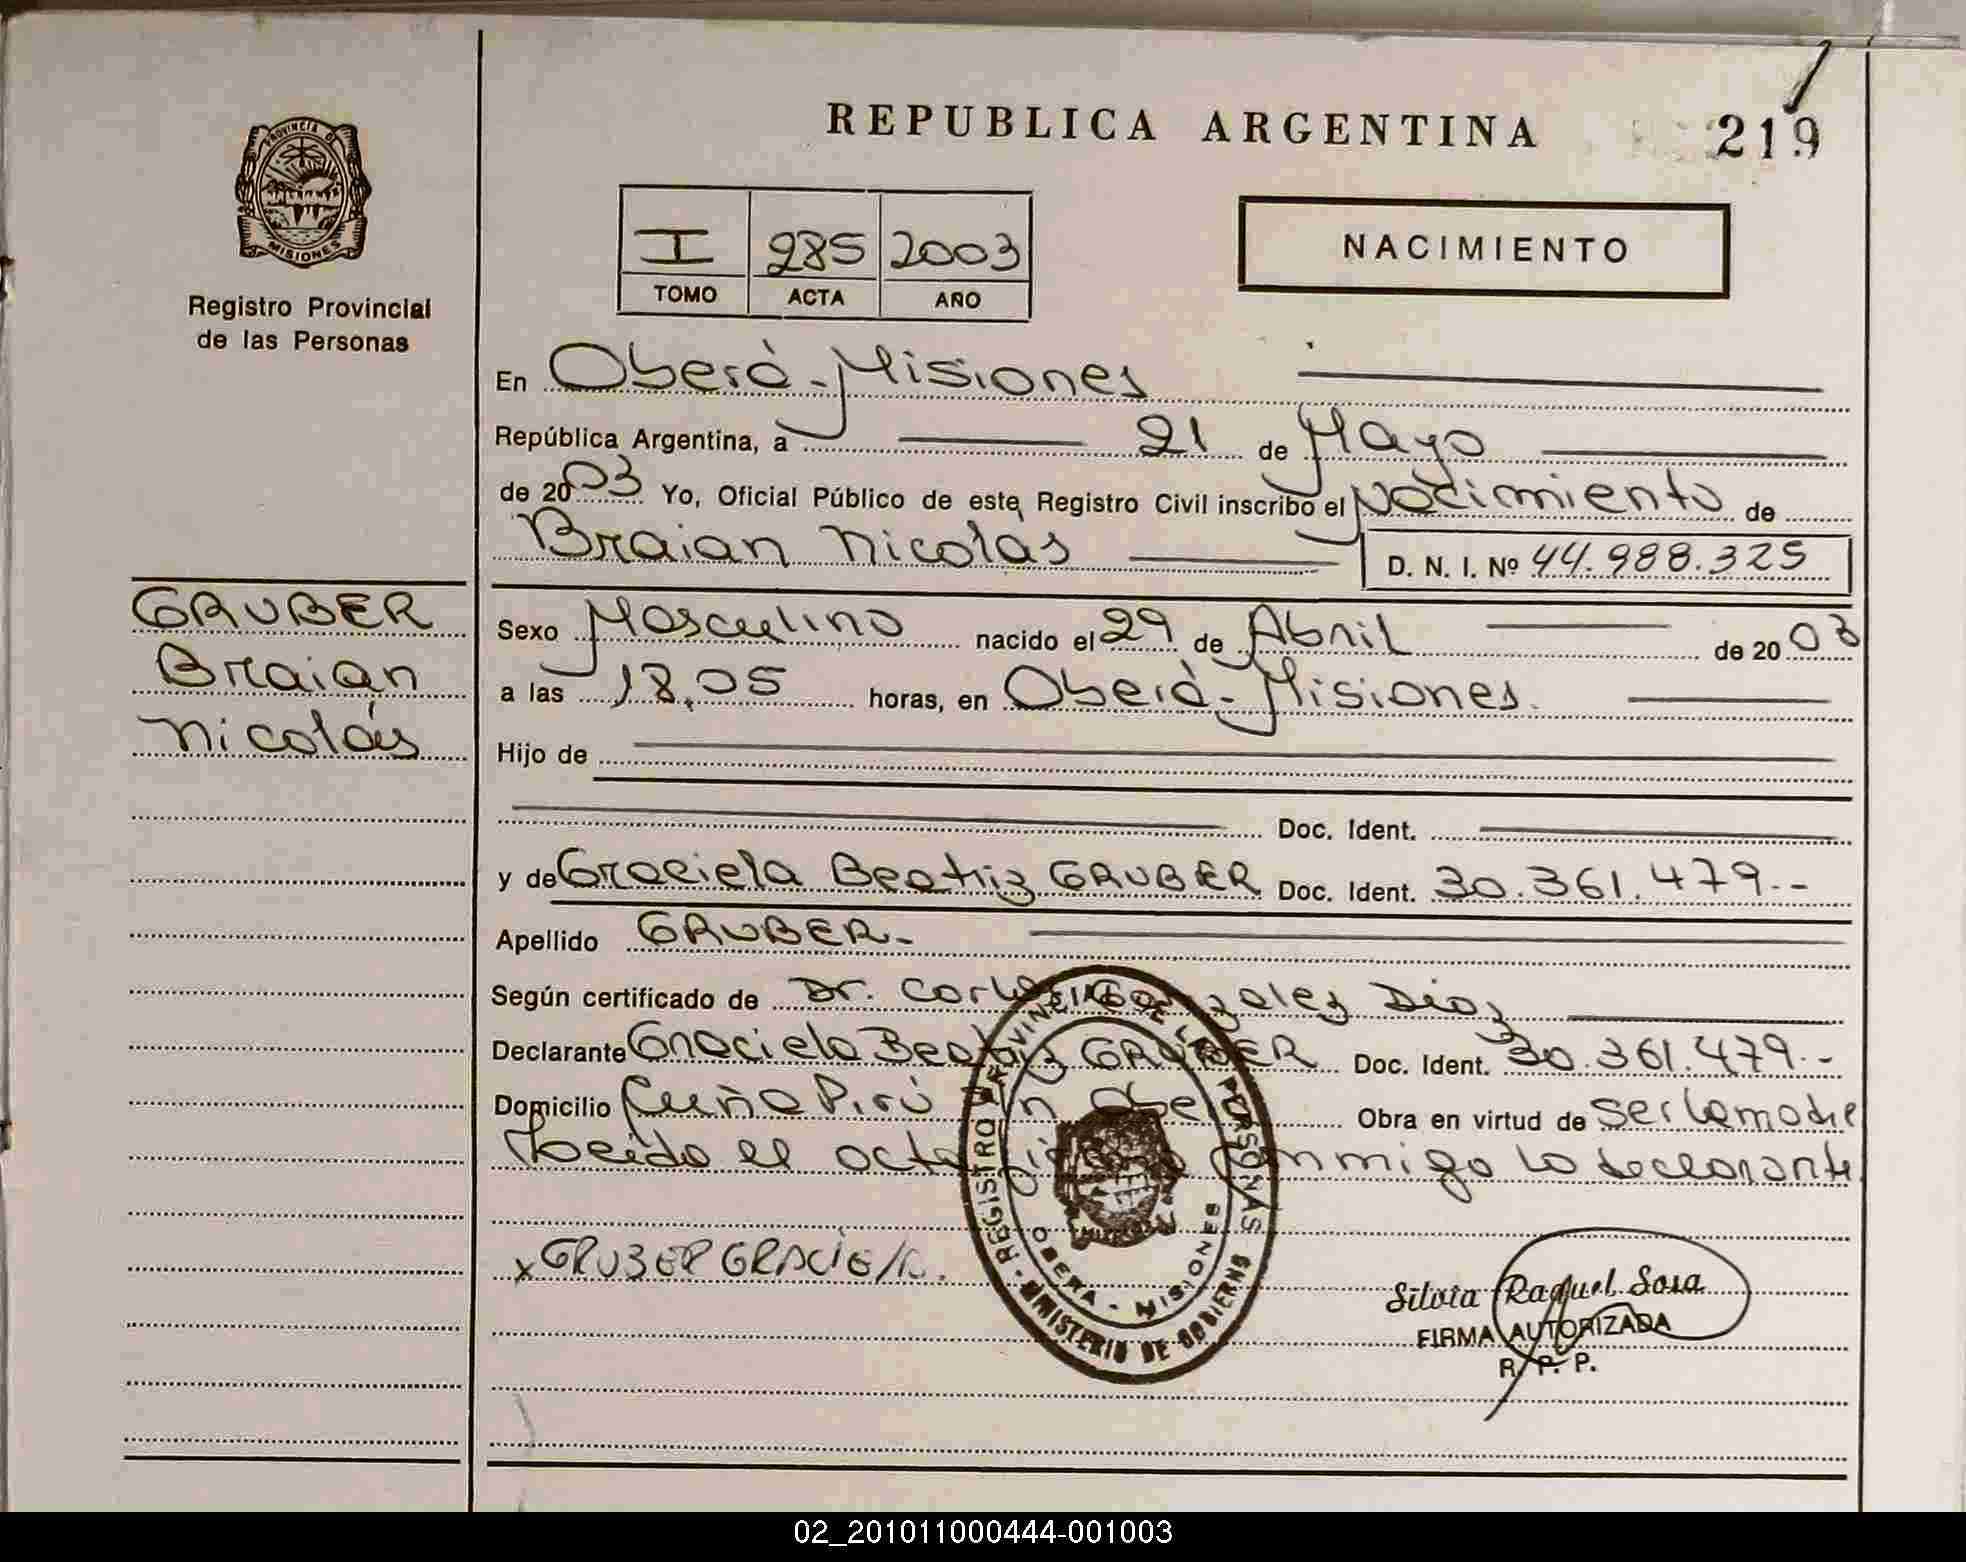 REPUBLICA ARGENTINA
219
PROVINCIA DE MISIONES
Registro Provincial
de las Personas
I 285 2003
TOMO ACTA AÑO
NACIMIENTO
En Oberá-Misiones
República Argentina, a 21 de Mayo
de 2003 Yo, Oficial Público de este Registro Civil inscribo el Nacimiento de
Braian Nicolas
D. N. I. Nº 44.988.325
GRUBER
Braian
Nicolás
Sexo Masculino nacido el 29 de Abril de 2003
a las 18,05 horas, en Oberá-Misiones.
Hijo de
Doc. Ident.
y de Graciela Beatriz GRUBER Doc. Ident. 30.361.479.-
Apellido GRUBER.-
Según certificado de Dr. Carlos Gonzalez Diaz
Declarante Graciela Beatriz GRUBER Doc. Ident. 30.361.479.-
Domicilio Cuña Pirú Obra en virtud de ser la madre
Leida el acta conmigo la declarante
x GRUBER GRACIELA.
REGISTRO PROVINCIAL DE LAS PERSONAS
OBERA - MISIONES
MINISTERIO DE GOBIERNO
Silvia Raquel Sosa
FIRMA AUTORIZADA
R. P. P.
02_201011000444-001003